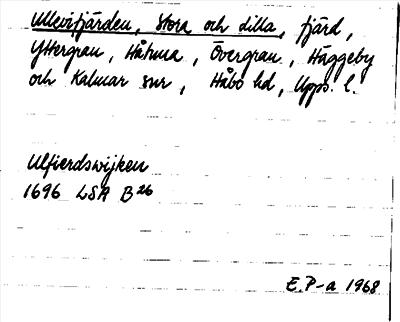 Ullevifjärden, Stora och Lilla, fjärd,
Yttergran, Håtuna, Övergran, Häggeby
och Kalmar snr, Håbo hd, Upps. l.
Ulfierdswijken
1696 LSA B26
E.P-a 1968